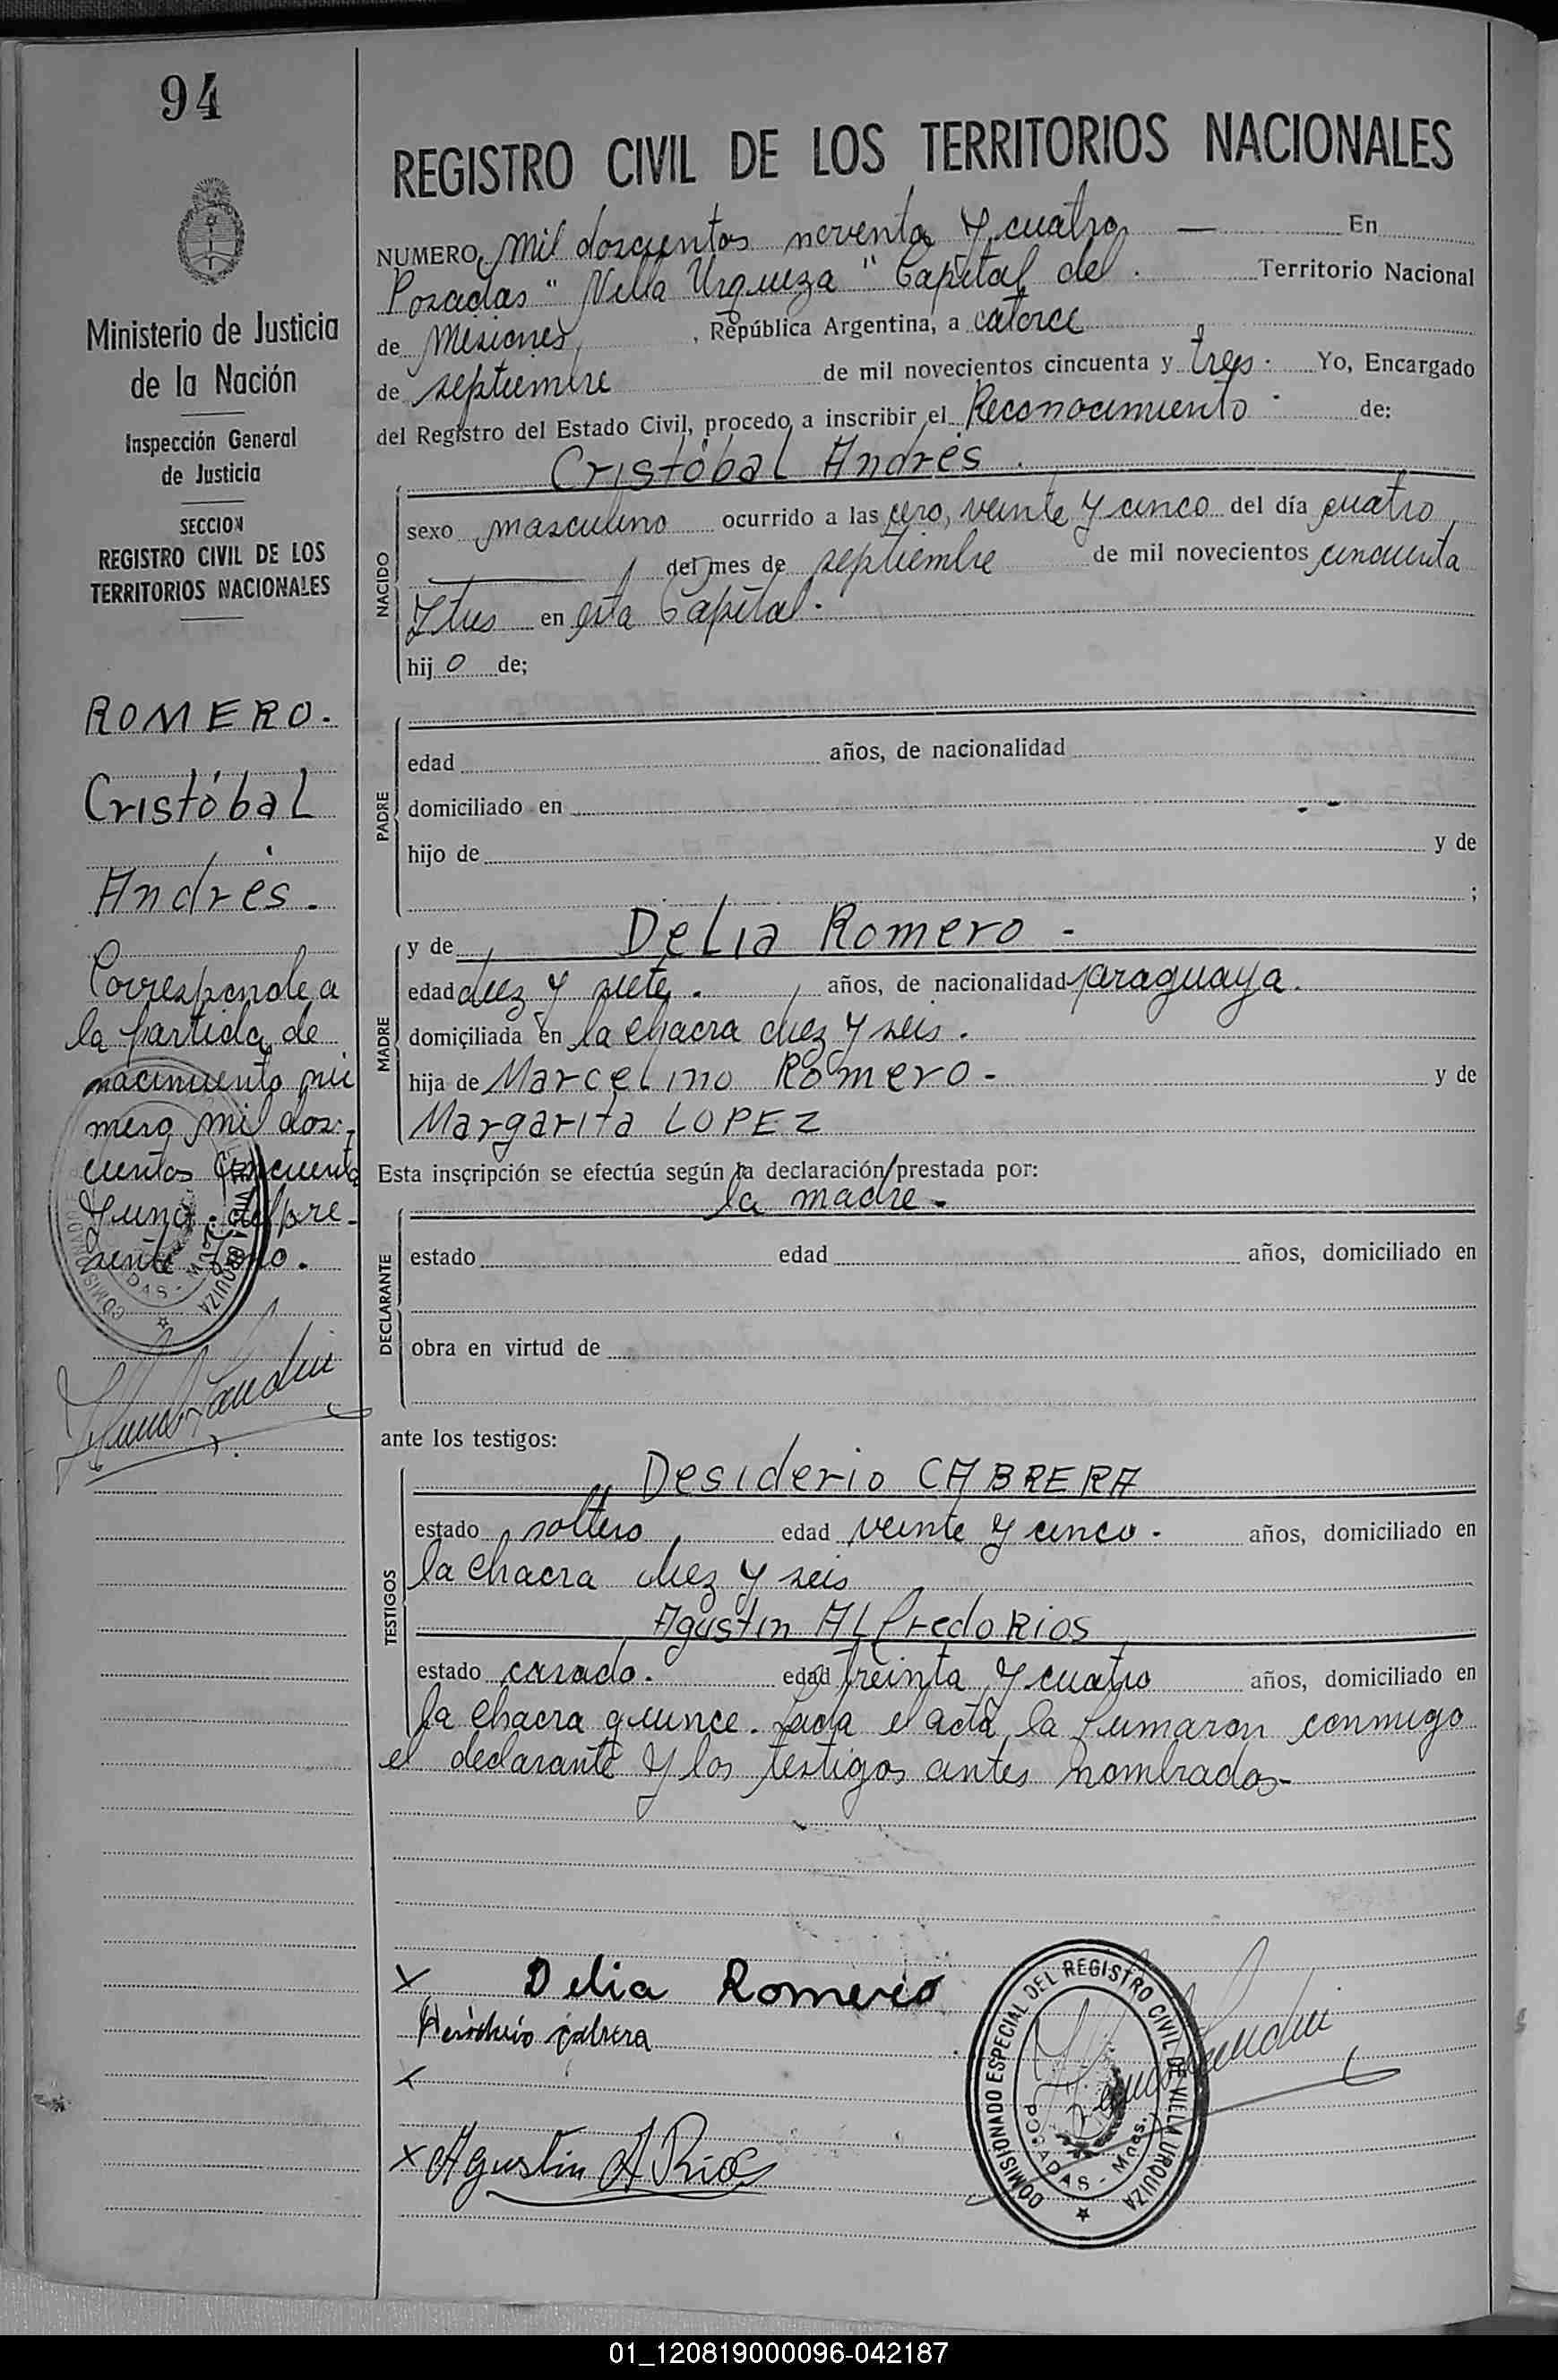 94
Ministerio de Justicia
de la Nación
Inspección General
de Justicia
SECCION
REGISTRO CIVIL DE LOS
TERRITORIOS NACIONALES
ROMERO.
Cristóbal
Andrés.
Corresponde a
la partida de
nacimiento nú
mero mil dos-
cientos cincuenta
y uno del pre-
sente año.
REGISTRO CIVIL DE LOS TERRITORIOS NACIONALES
NUMERO mil doscientos noventa y cuatro — En
Posadas "Villa Urquiza" Capital del Territorio Nacional
de Misiones, República Argentina, a catorce
de septiembre de mil novecientos cincuenta y tres. Yo, Encargado
del Registro del Estado Civil, procedo a inscribir el Reconocimiento de:
Cristóbal Andrés.
NACIDO
sexo masculino ocurrido a las cero, veinte y cinco del día cuatro
del mes de septiembre de mil novecientos cincuenta
y tres en esta Capital.
hijo de;
PADRE
edad años, de nacionalidad
domiciliado en
hijo de y de
;
MADRE
y de Delia Romero -
edad diez y siete. años, de nacionalidad paraguaya.
domiciliada en la chacra diez y seis.
hija de Marcelino Romero - y de
Margarita LOPEZ
Esta inscripción se efectúa según la declaración prestada por:
la madre -
DECLARANTE
estado edad años, domiciliado en
obra en virtud de
ante los testigos:
TESTIGOS
Desiderio CABRERA
estado soltero edad veinte y cinco. años, domiciliado en
la chacra diez y seis
Agustin ALfredo Rios
estado casado. edad treinta y cuatro años, domiciliado en
la chacra quince. Leida el acta, la firmaron conmigo
el declarante y los testigos antes nombrados-
x Delia Romero
cabrera
x
x Agustin A Rios
COMISIONADO ESPECIAL DEL REGISTRO CIVIL DE VILLA URQUIZA
POSADAS - Mnes.
01_120819000096-042187